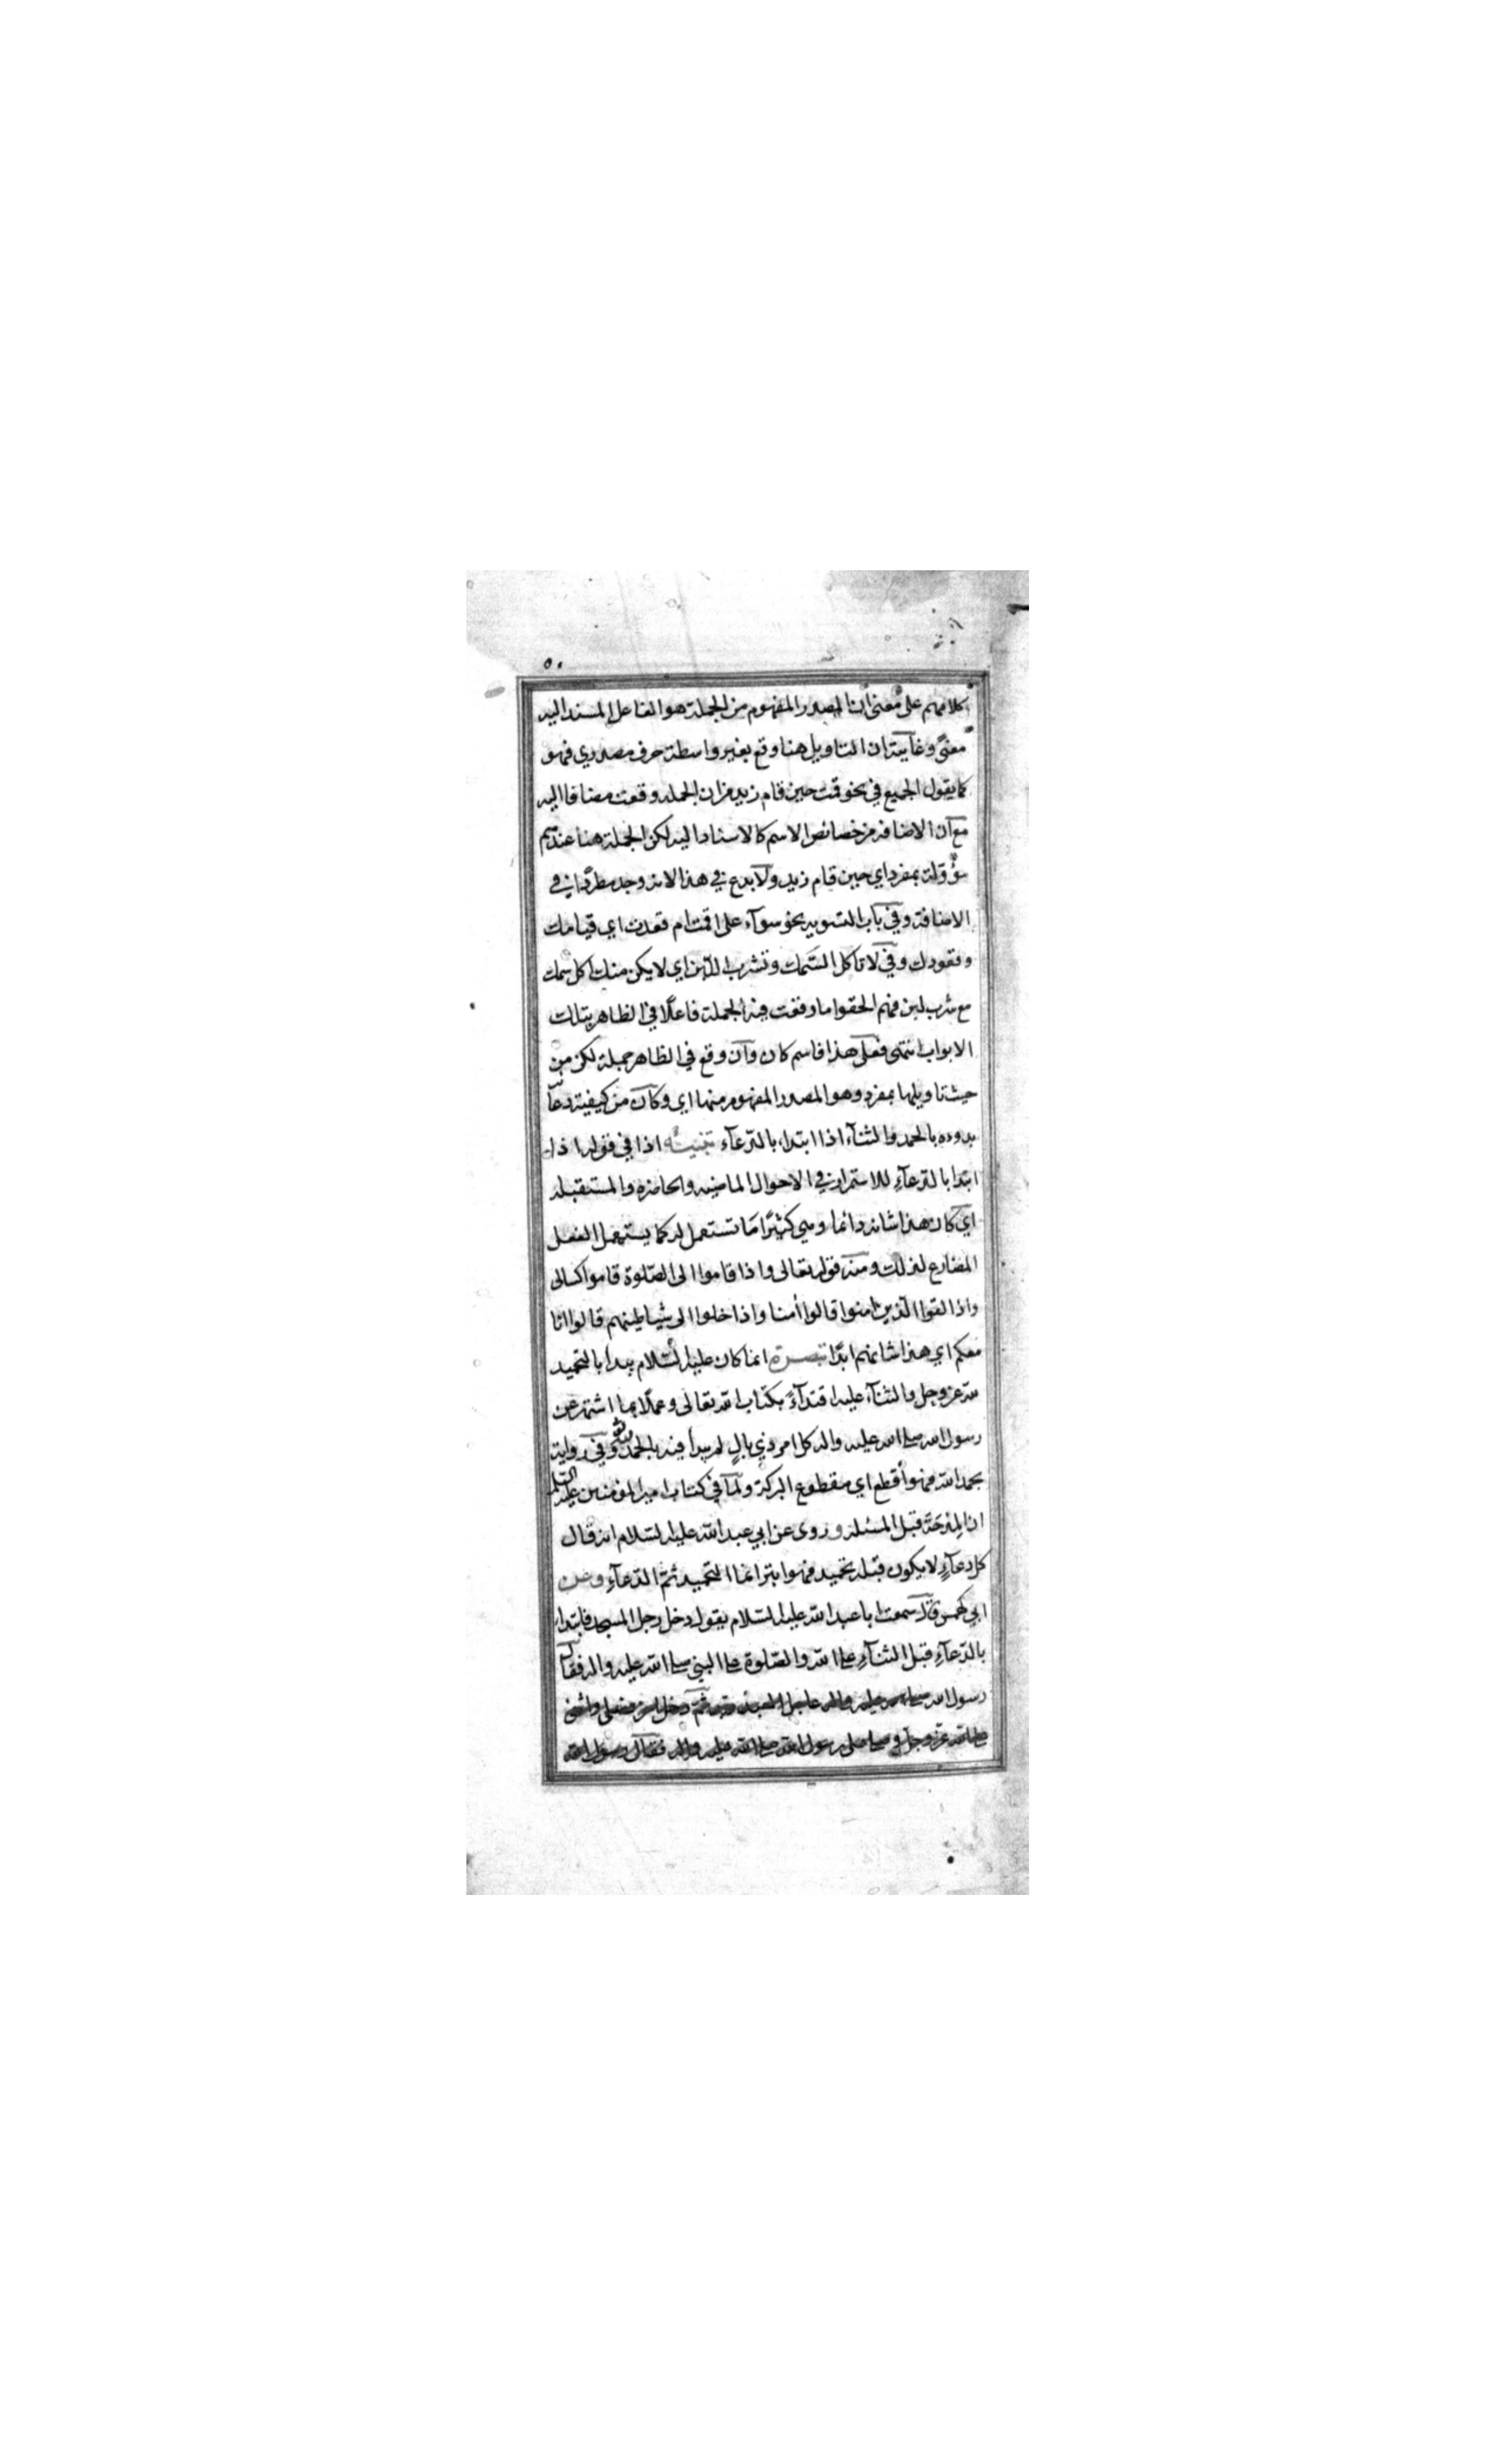 ٥٠
كلامهم على معنى ان المصدر المفهوم من الجملة هو الفاعل المسند اليه
معنىً وغايته ان التاويل هنا وقع بغير واسطة حرف مصدري فهو
كما يقول الجميع في نحو قمت حين قام زيد من ان الجملة وقعت مضافا اليه
مع ان الاضافة من خصائص الاسم كالاسناد اليه لكن الجملة هنا عندهم
مؤوّلة بمفرد اي حين قيام زيد ولا بدع في هذا لانه وجد مطردًا في
الاضافة وفي باب التسوية نحو سوآء على اقمت ام قعدت اي قيامك
وقعودك وفي لا تاكل السّمك وتشرب اللّبن اي لا يكن منك اكل سمك
مع شرب لبن فهم الحقوا ما وقعت فيه الجملة فاعلًا في الظاهر بتلك
الابواب انتهى فعلى هذا فاسم كان وان وقع في الظاهر جملة لكن من
حيث تاويلها بمفرد وهو المصدر المفهوم منها اي وكان من كيفية دعآئه
بدوءه بالحمد والثنآء اذا ابتدا بالدّعآء تنبيه اذا في قوله اذا
ابتدا بالدّعآءِ للاستمرار في الاحوال الماضيه والحاضره والمستقبله
اي كان هذا شانه دائما وهي كثيرًا مّا تستعمل له كما يستعمل الفعل
المضارع لذلك ومنه قوله تعالى واذا قاموا الى الصّلوة قاموا كسالى
واذا لقوا الّذين امنوا قالوا أمنا واذا خلوا الى شياطينهم قالوا انا
معكم اي هذا شانهم ابدًا تبصرة انما كان عليه السّلام يبدا بالتحميد
للّه عز وجل والثنآء عليه اقتدآءً بكتاب اللّه تعالى وعملًا بما اشتهر عن
رسول الله صلى الله عليه واله كل امر ذي بالٍ لم يبدأ فيه بالحمد لله وفي رواية
بحمد اللّه فهو أقطع اي مقطوع البركة ولما في كتاب امير المؤمنين عليه السّلم
ان المِدْحَة قبل المسئلة وروى عن ابي عبد اللّه عليه السّلام انه قال
كل دعآءٍ لا يكون قبله تحميد فهو ابتر انما التحميد ثمّ الدّعآءِ وعن
ابي كهمس قال سمعت ابا عبد اللّه عليه السّلام يقول دخل رجل المسجد فابتدا
بالدّعآءِ قبل الثنآءِ على اللّه والصّلوة على النبي صلى اللّه عليه واله فقال
رسول الله صلى الله عليه واله عاجل العبد ربه ثمّ دخل اخر فصلى واثنى
على اللّه عزّ وجل وصلى على رسول اللّه صلى اللّه عليه واله فقال رسول اللّه